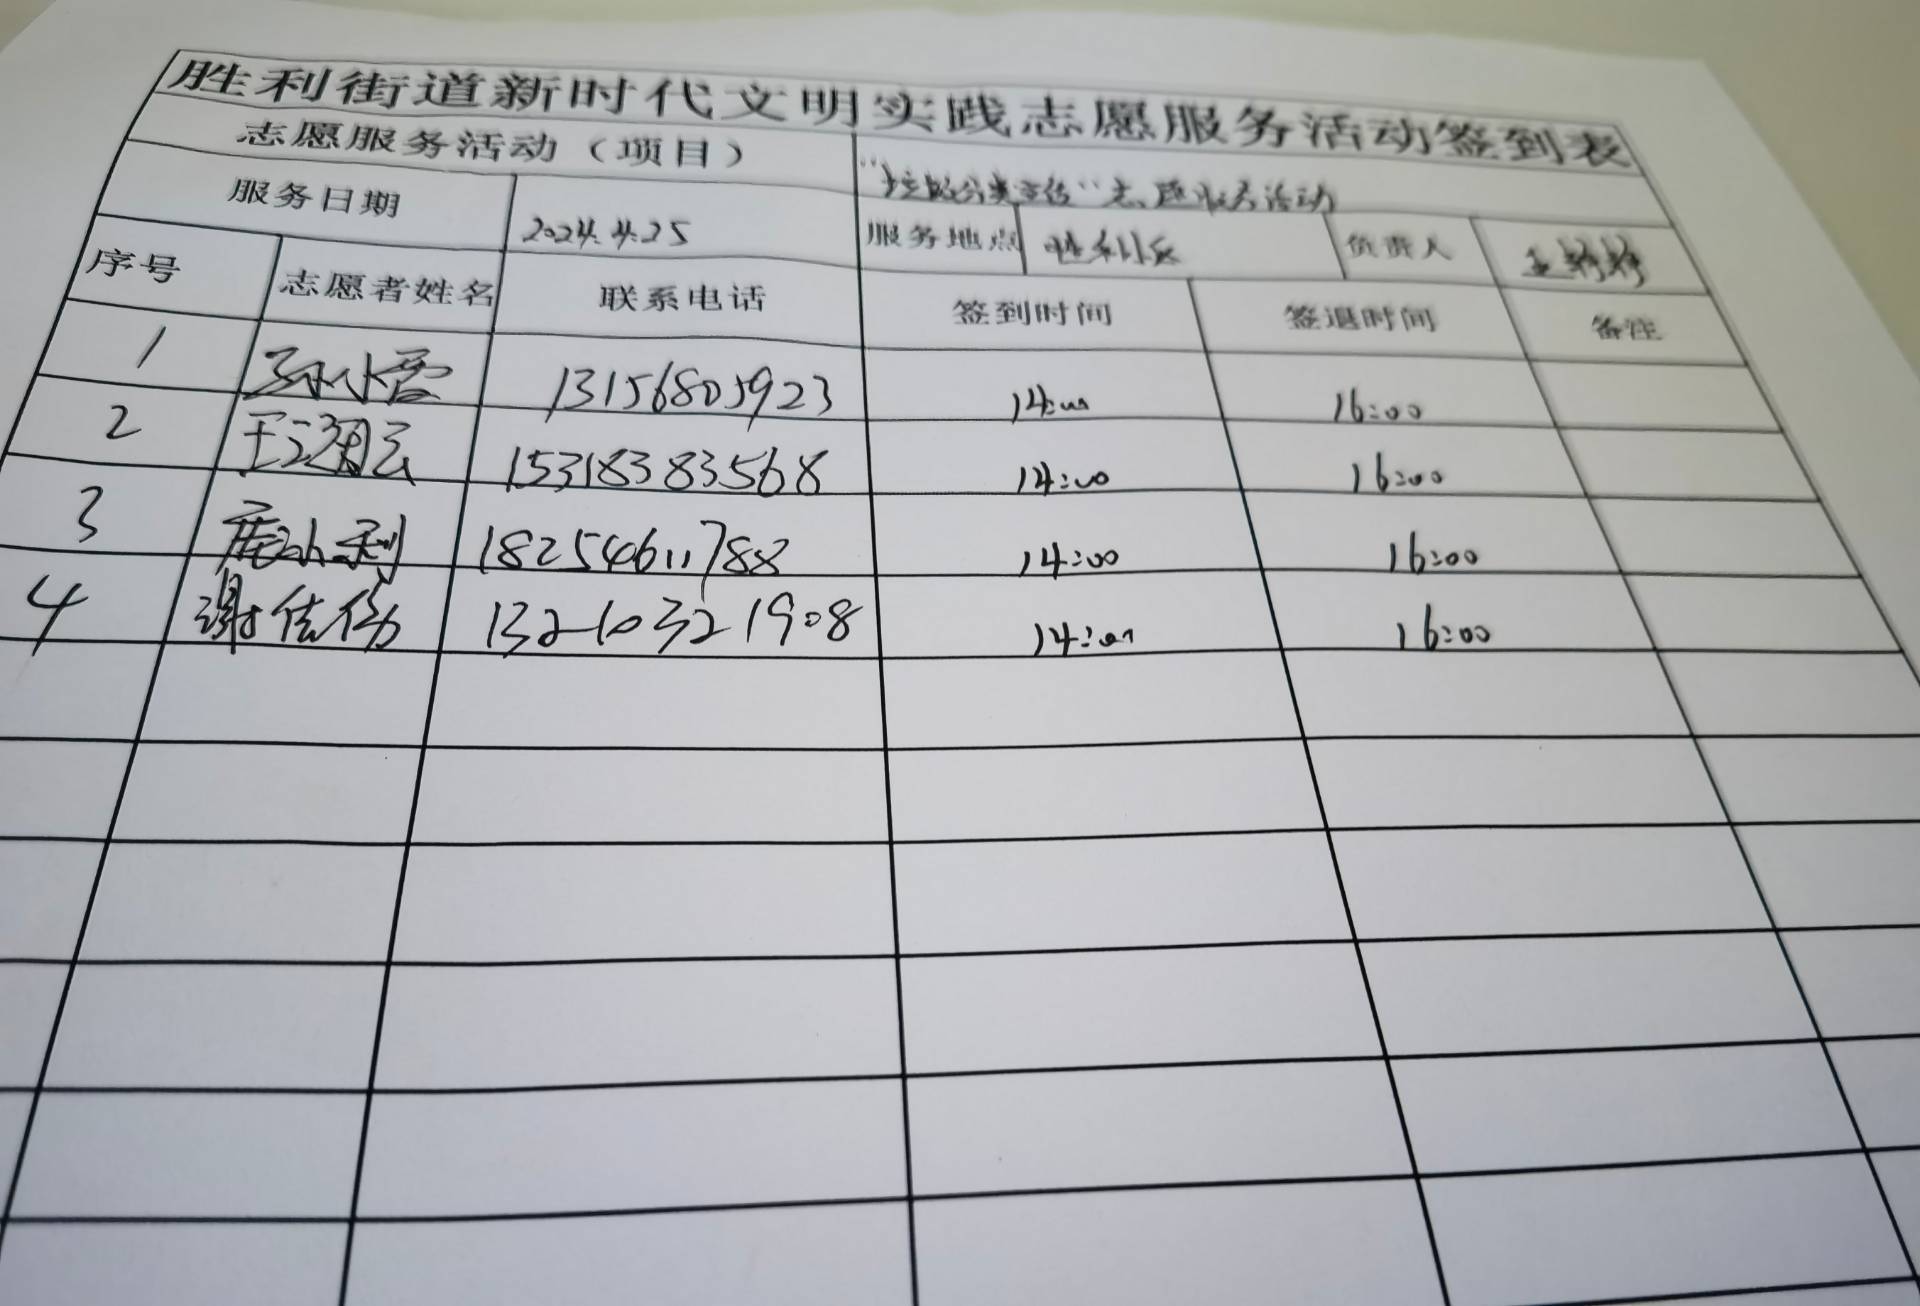 胜利街道新时代文明实践志愿服务活动签到表
志愿服务活动（项目） "垃圾分类宣传"志愿服务活动
服务日期 2024.4.25 服务地点 胜利 负责人
序号 志愿者姓名 联系电话 签到时间 签退时间 备注
1 孙小雪 13156805923 14:00 16:00
2 王 云 15318383568 14:00 16:00
3 利 18254611788 14:00 16:00
4 谢佳 13210321908 14:00 16:00